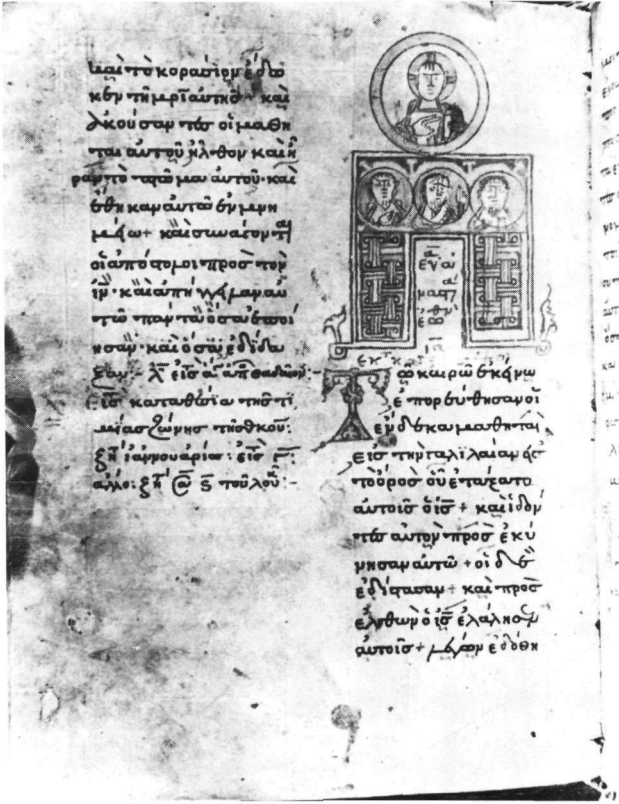 καὶ τὸ κοράσιον ἔδω
κεν τῆ μρῒ αὐτῆσ + καὶ
ἀκούσαντεσ οἱ μαθη
ταὶ αὐτοῦ ἦλθον καὶ ἦ
ραν τὸ πτῶμα αὐτοῦ · καὶ
ἔθηκαν αὐτῶ ἐν μνη
μείω + καὶ συνάγονται
οἱ ἀπόστολοι πρὸσ τὸν
ἰν · καὶ ἀπήγγειλαν αὐ
τῶ πάντα ὅσα ἐποί
ησαν · καὶ ὅσα ἐδίδα
ξαν
εἰσ κατάθεσϊν τῆσ τι
μίασ ζώνησ τῆσ θκου :
ἰαννουαρίω : εἰσ
ἄλλο : τοῦ λου
εὐα
ματ
τῶ καιρῶ ἐκείνω
ἐπορεύθησαν οἱ
ἕνδεκα μαθηταὶ
εἰσ τὴν γαλϊλαίαν εἰσ
τὸ ὄροσ οὗ ἐτάξατο
αὐτοῖσ ὁ ἰσ + καὶ ἰδόν
τεσ αὐτὸν προσεκύ
νησαν αὐτῶ + οἱ δὲ
ἐδίστασαν + καὶ προσ
ελθὼν ὁ ἰσ ἐλάλησεν
αὐτοῖσ + λέγων ἐδόθη